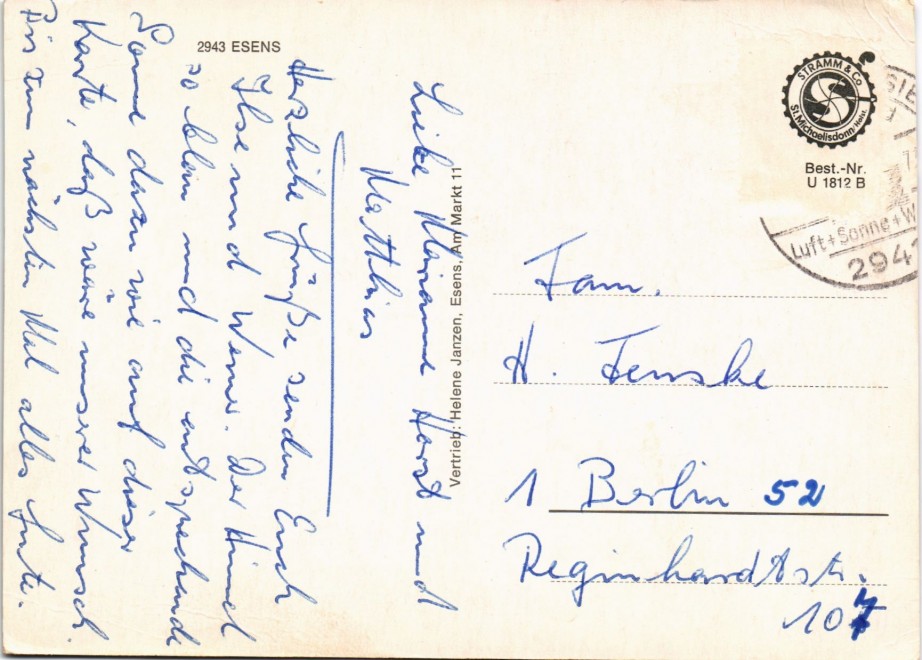 2943 ESENS
Liebe Marianne Horst und
Matthias
Herzliche Grüße senden Euch
Ilse und Werner. Der Himmel
so blau und die entsprechende
Sonne dazu wie auf dieser
Karte, daß wäre unser Wunsch.
Bis zum nächsten Mal alles Gute.
Vertrieb: Helene Janzen, Esens, Am Markt 11
STRAMM & Co
St. Michaelisdonn/Holst.
Best.-Nr.
U 1812 B
Luft+Sonne+W
294
Fam.
H. Fenske
1 Berlin 52
Reginhardtstr.
107